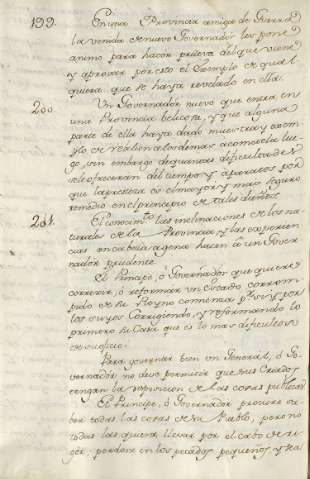 199. En una Provincia amiga de Guerra
la venida de nuevo Governador les pone
animo para hacer prueva del que viene
y aprovar por esto el Exemplo de qual
quiera que se haya revelado en ella.
200. Un Governador nuevo que entra en
una Provincia belicosa, y que alguna
parte de ella haya dado muestra, y exem
plo de rebelion a los demas acometa lue
go, sin embargo de quantas dificultades
se le ofrecieran del tiempo, y aparatos por
que la presteza es el mayor y mas seguro
remedio en el principio de tales daños.
201. El conocimto las inclinaciones de los na
turales de la Provincia, y las experien
cias en cabeza agena hacen à un Gover
nador prudente.
El Principe, ò Governador que quiere
correxir, ò reformar un Estado corrom
pido de su Reyno comienza por si, y por
los suyos Corrigiendo, y reformando lo
primero su Casa que es lo mas dificultoso
de su oficio.
Para governar bien un General, ò Go
vernador no deve permitir que sus Criados
tengan la de las cosas publicas
El Principe, ò Governador procure sa
ber todas las cosas de su Pueblo, pero no
todas las quiera llevar por el cabo de ri
gor; perdone en los pecados pequeños, y